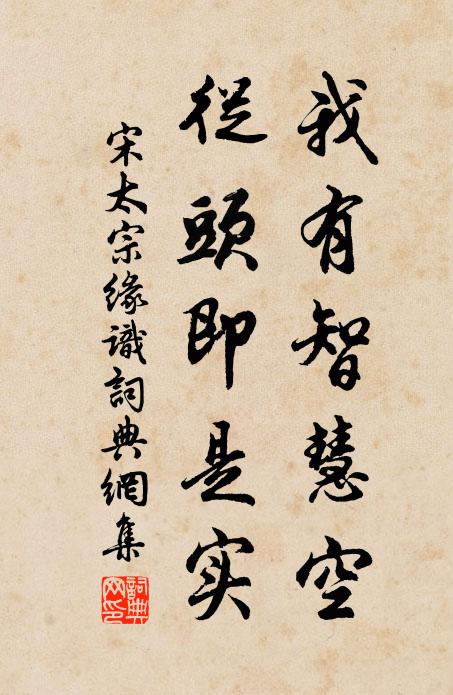 我有智慧空
從頭即是实
宋太宗緣識詞典網集
詞典網印